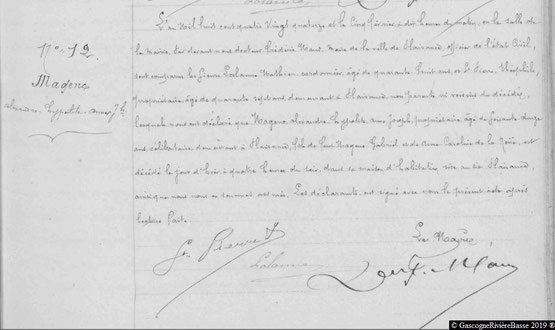 L'an Mil huit cent quatre Vingt quatorze et le Cinq février à dix heures du matin, en la salle de
N° 12
la mairie, Par devant nous docteur Frédéric Maur, Maire de la ville de Plaisance, officier de l'état Civil,
Magenc
sont comparus les sieurs Lalanne Mathieu cordonnier, âgé de quarante huit ans et St Pierre Théophile,
propriétaire âgé de quarante sept ans, domiciliés à Plaisance, non parents ni voisins du décédé,
lesquels nous ont déclaré que Magenc, Alexandre, Hyppolite, Joseph, propriétaire âgé de soixante douze
ans, célibataire domicilié à Plaisance, fils de feu Magenc Gabriel et de Anne Caroline de la Noë, est
décédé le jour d'hier à quatre heures du soir, dans sa maison d'habitation sise au dit Plaisance,
ainsi que nous nous en sommes assuré. Les déclarants ont signé avec nous le présent acte après
lecture faite.
Le Maire,
St Pierre T
Lalanne
Dr F. Maur
© GascogneRivièreBasse 2019 ®